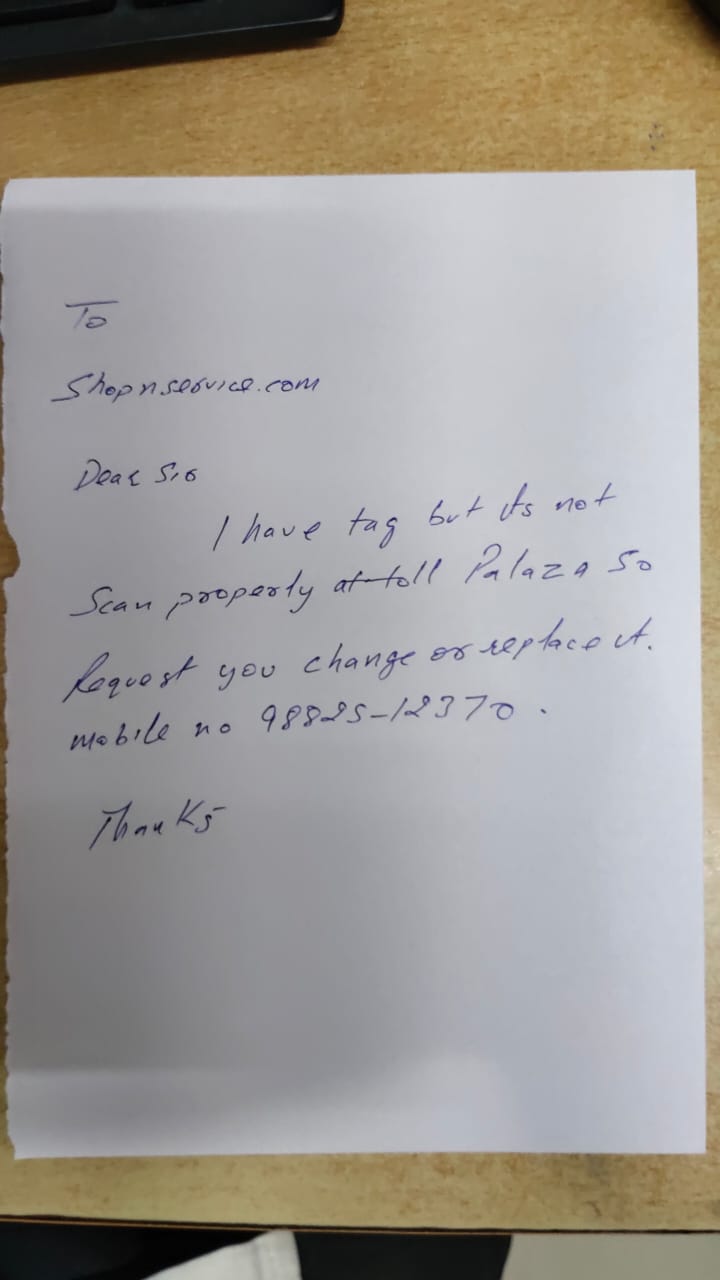 To
Shopnservice.com
Dear Sir
I have tag but its not
Scan properly at toll Palaza So
Request you change or replace it.
mobile no 98825-12370.
Thanks